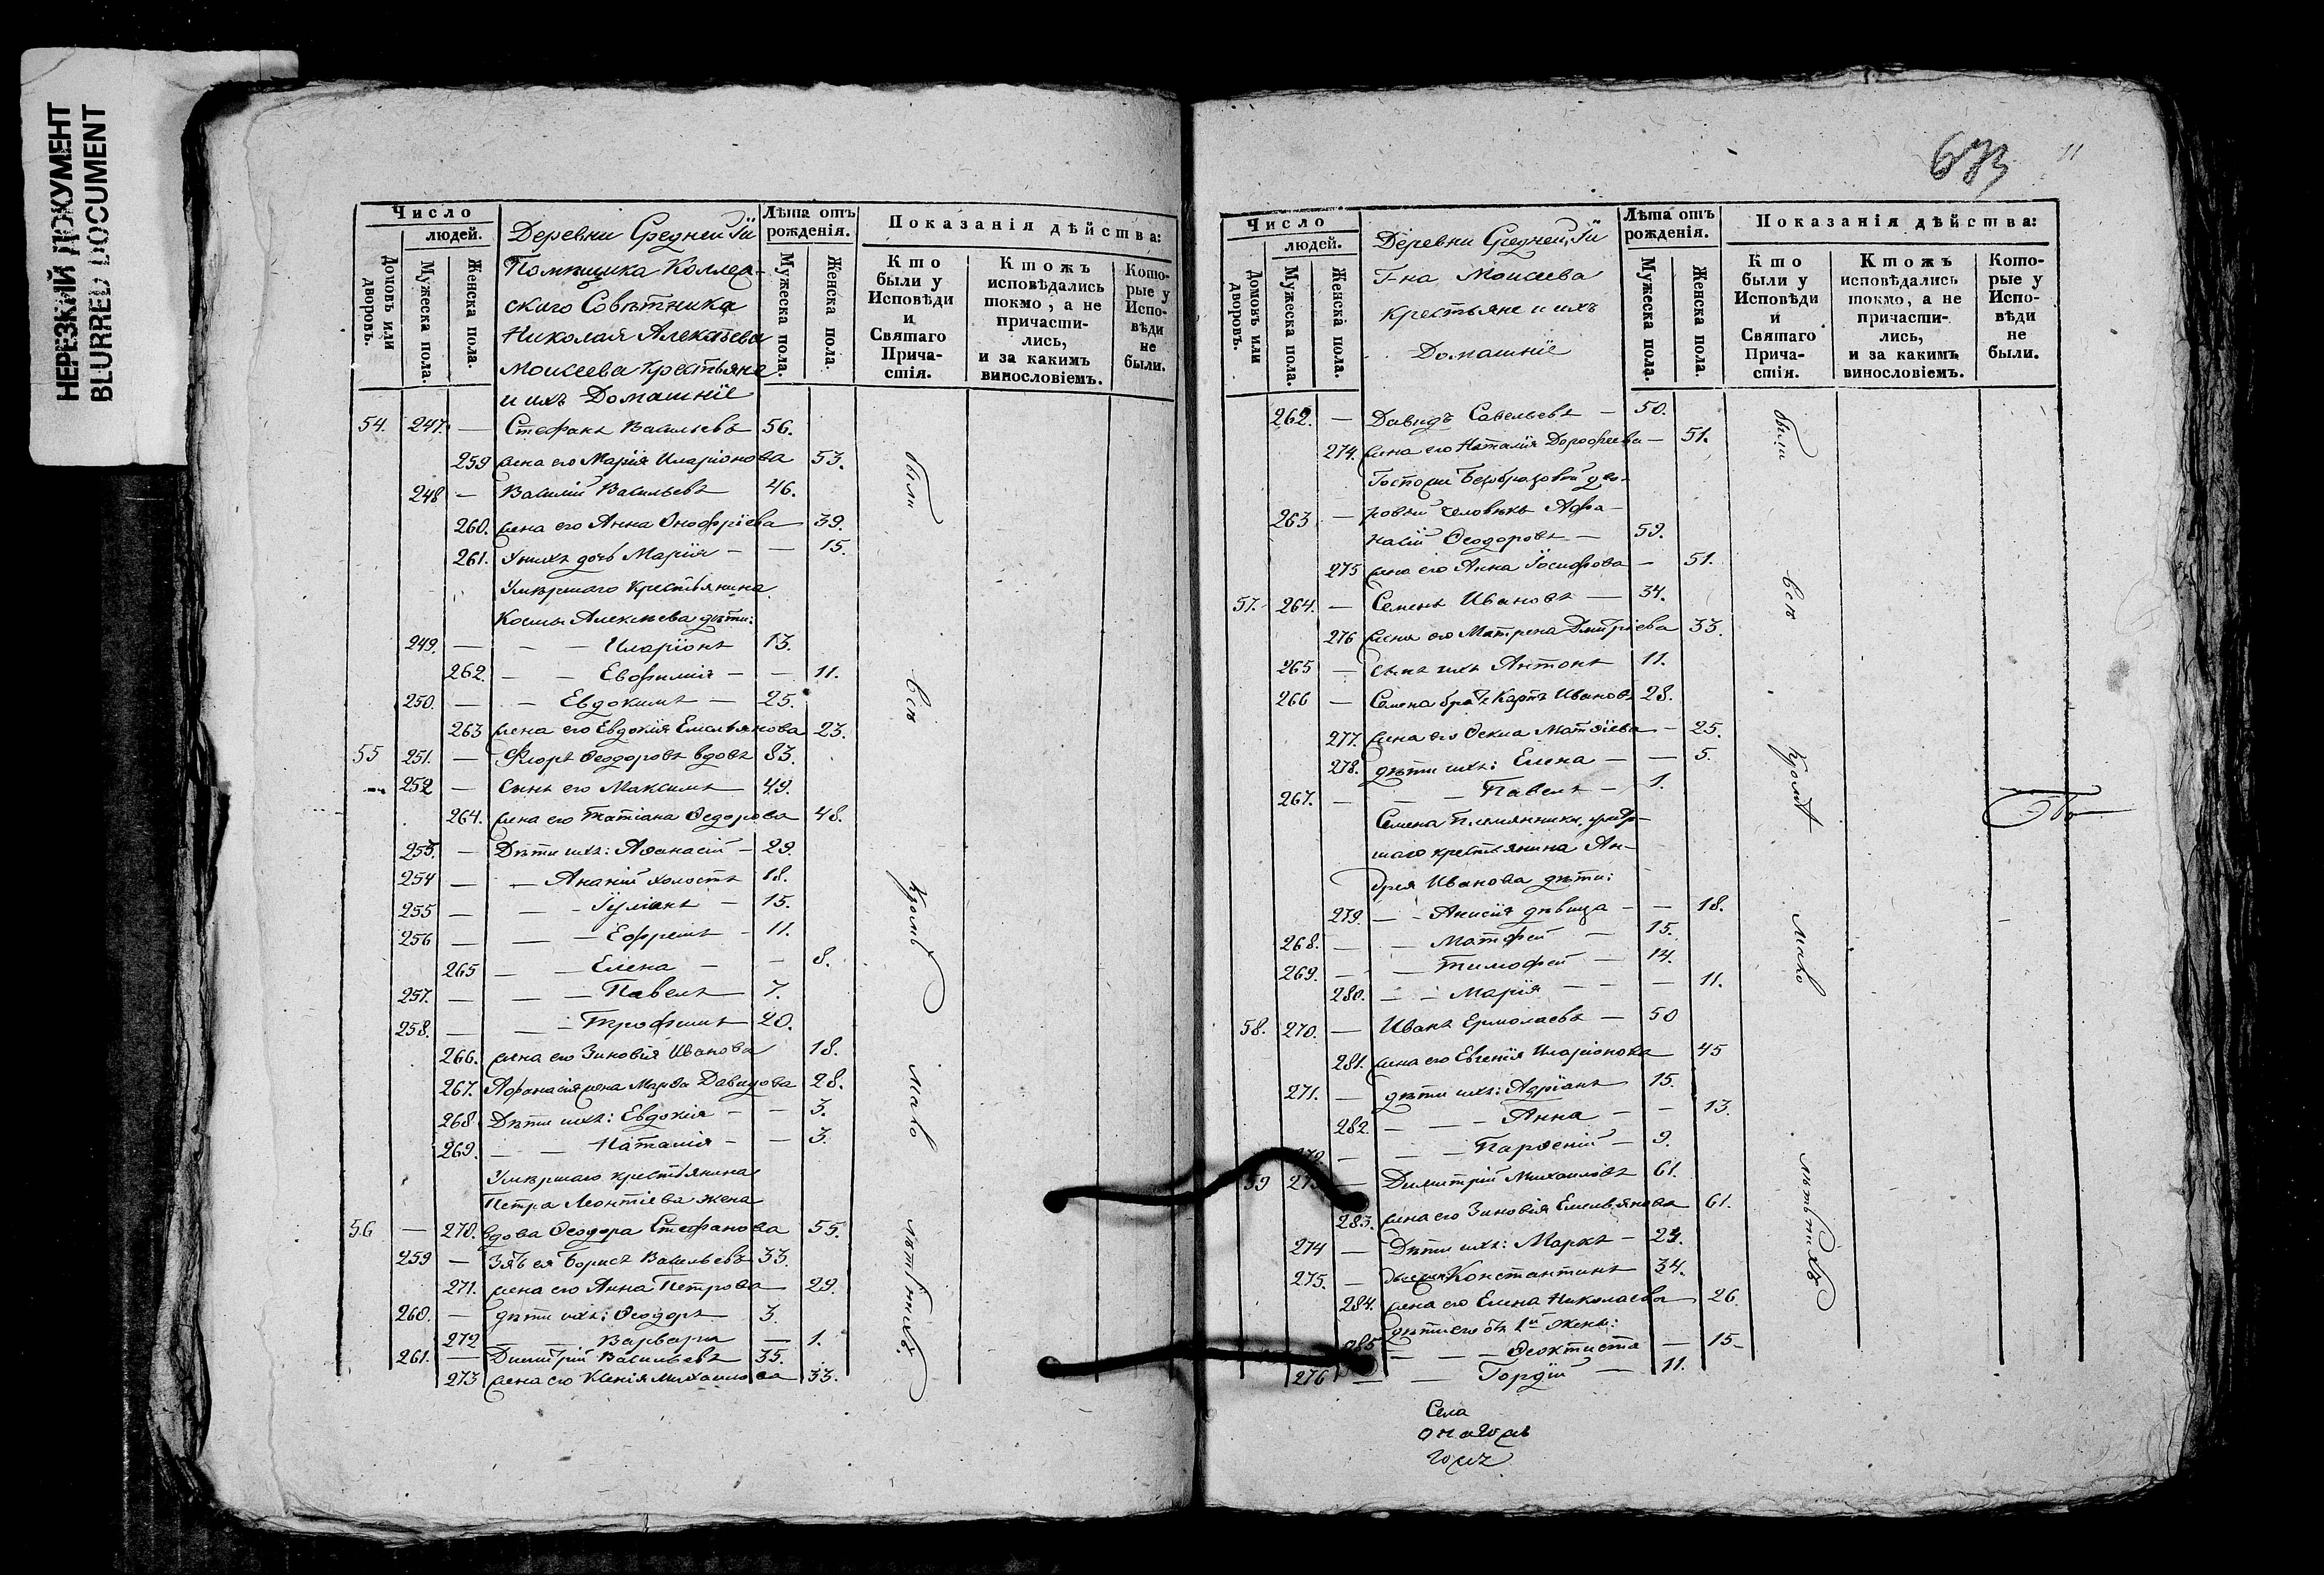 НЕРЕЗКИЙ ДОКУМЕНТ
BLURRED DOCUMENT
Число
людей.
Домовъ или дворовъ.
Мужеска пола.
Женска пола.
Деревни Средней
Помѣщика Коллеж-
скаго Совѣтника
Николая Алексѣева
Моисеева Крестьяне
и ихъ Домашніе
Лѣта отъ рожденія.
Мужеска пола.
Женска пола.
Показанія дѣйства:
Кто были у Исповѣди и Святаго Прича-стія.
Ктожъ исповѣдались токмо, а не причасти-лись, и за какимъ винословіемъ.
Кото-рые у Испо-вѣди не были.
54. 247. — Стефанъ Васильевъ 56.
259 жена его Марія Иларіонова 53.
248 — Василій Васильевъ 46.
260. жена его Анна Онофріева 39.
261. У нихъ дочь Марія — — 15.
Умершаго Крестьянина
Космы Алексѣева дѣти:
249. — — — Иларіонъ 13.
262. — — Евфимія — — 11.
250. — — Евдокимъ — 25.
263 жена его Евдокія Емельянова 23.
55 251. — Флоръ Ѳеодоровъ вдовъ 83.
252 — Сынъ его Максимъ 49.
264. жена его Татіана Ѳедорова 48.
253. — Дѣти ихъ: Аѳанасій — 29.
254 — — Ананій холостъ 18.
255 — — — Іуліанъ — 15.
256 — — — Ефремъ — 11.
265 — — Елена — — 8.
257. — — — Павелъ 7.
258. — — Трофимъ 20.
266. жена его Зиновія Иванова 18.
267. Афанасія жена Марѳа Давидова 28.
268 Дѣти ихъ: Евдокія — — 3.
269. — — Наталія — — 3.
Умершаго крестьянина
Петра Леонтіева жена
56 — 270. вдова Ѳеодора Стефанова 55.
259 — Зять ея Борисъ Васильевъ 33.
271. жена его Анна Петрова 29.
260. — дѣти ихъ: Ѳеодоръ 3.
272 — — Варвара — 1.
261. — Димитрій Васильевъ 35.
273 жена его Ксенія Михаилова 33.
были всѣ кромѣ мало лѣтнихъ
11
Число
людей.
Домовъ или дворовъ.
Мужеска пола.
Женска пола.
Деревни Средней
Г-на Моисеева
крестьяне и ихъ
Домашніе
Лѣта отъ рожденія.
Мужеска пола.
Женска пола.
Показанія дѣйства:
Кто были у Исповѣди и Святаго Прича-стія.
Ктожъ исповѣдались токмо, а не причасти-лись, и за какимъ винословіемъ.
Кото-рые у Испо-вѣди не были.
262. — Давидъ Савельевъ — 50.
274. жена его Наталія Дорофеева — 51.
Госпожи Безобразовой дво-
263 — ровый человѣкъ Афа-
насій Ѳеодоровъ — 59.
275 жена его Анна Іосифова — 51.
57. 264. — Семенъ Ивановъ — 34.
276 жена его Матрена Дмитріева 33.
265 — сынъ ихъ Антонъ 11.
266 — Семена братъ Карпъ Ивановъ 28.
277. жена его Ѳекла Матѳіева — 25.
278. дѣти ихъ: Елена — — 5.
267. — — — Павелъ — 1.
Семена племянники, умер-
шаго крестьянина Ан-
дрея Иванова дѣти:
279. — — Анисія дѣвица — — 18.
268. — — Матфей — 15.
269. — — Тимофей — 14.
280. — — Марія — — — 11.
58. 270. — Иванъ Ермолаевъ — 50
281. жена его Евгенія Иларіонова 45
271. — дѣти ихъ: Адріанъ 15.
282. — — — Анна — — 13.
— — — Парѳеній — 9.
59 — Димитрій Михаиловъ 61.
283. жена его Зиновія Емельянова 61.
274 — Дѣти ихъ: Маркъ — 24.
275. — Константинъ 34.
284. жена его Елена Николаева 26.
дѣти его отъ 1й жены:
285 — — — Ѳеоктиста — 15.
276 — — Гордій — 11.
были всѣ кромѣ мало лѣтнихъ
Села